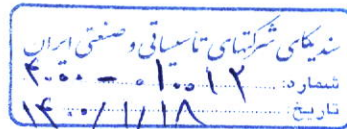 سندیکای شرکتهای تأسیساتی و صنعتی ایران
شماره: ۴۰۰۰ - ۰۱۰۰۱۲
تاریخ: ۱۴۰۰/۱/۱۸